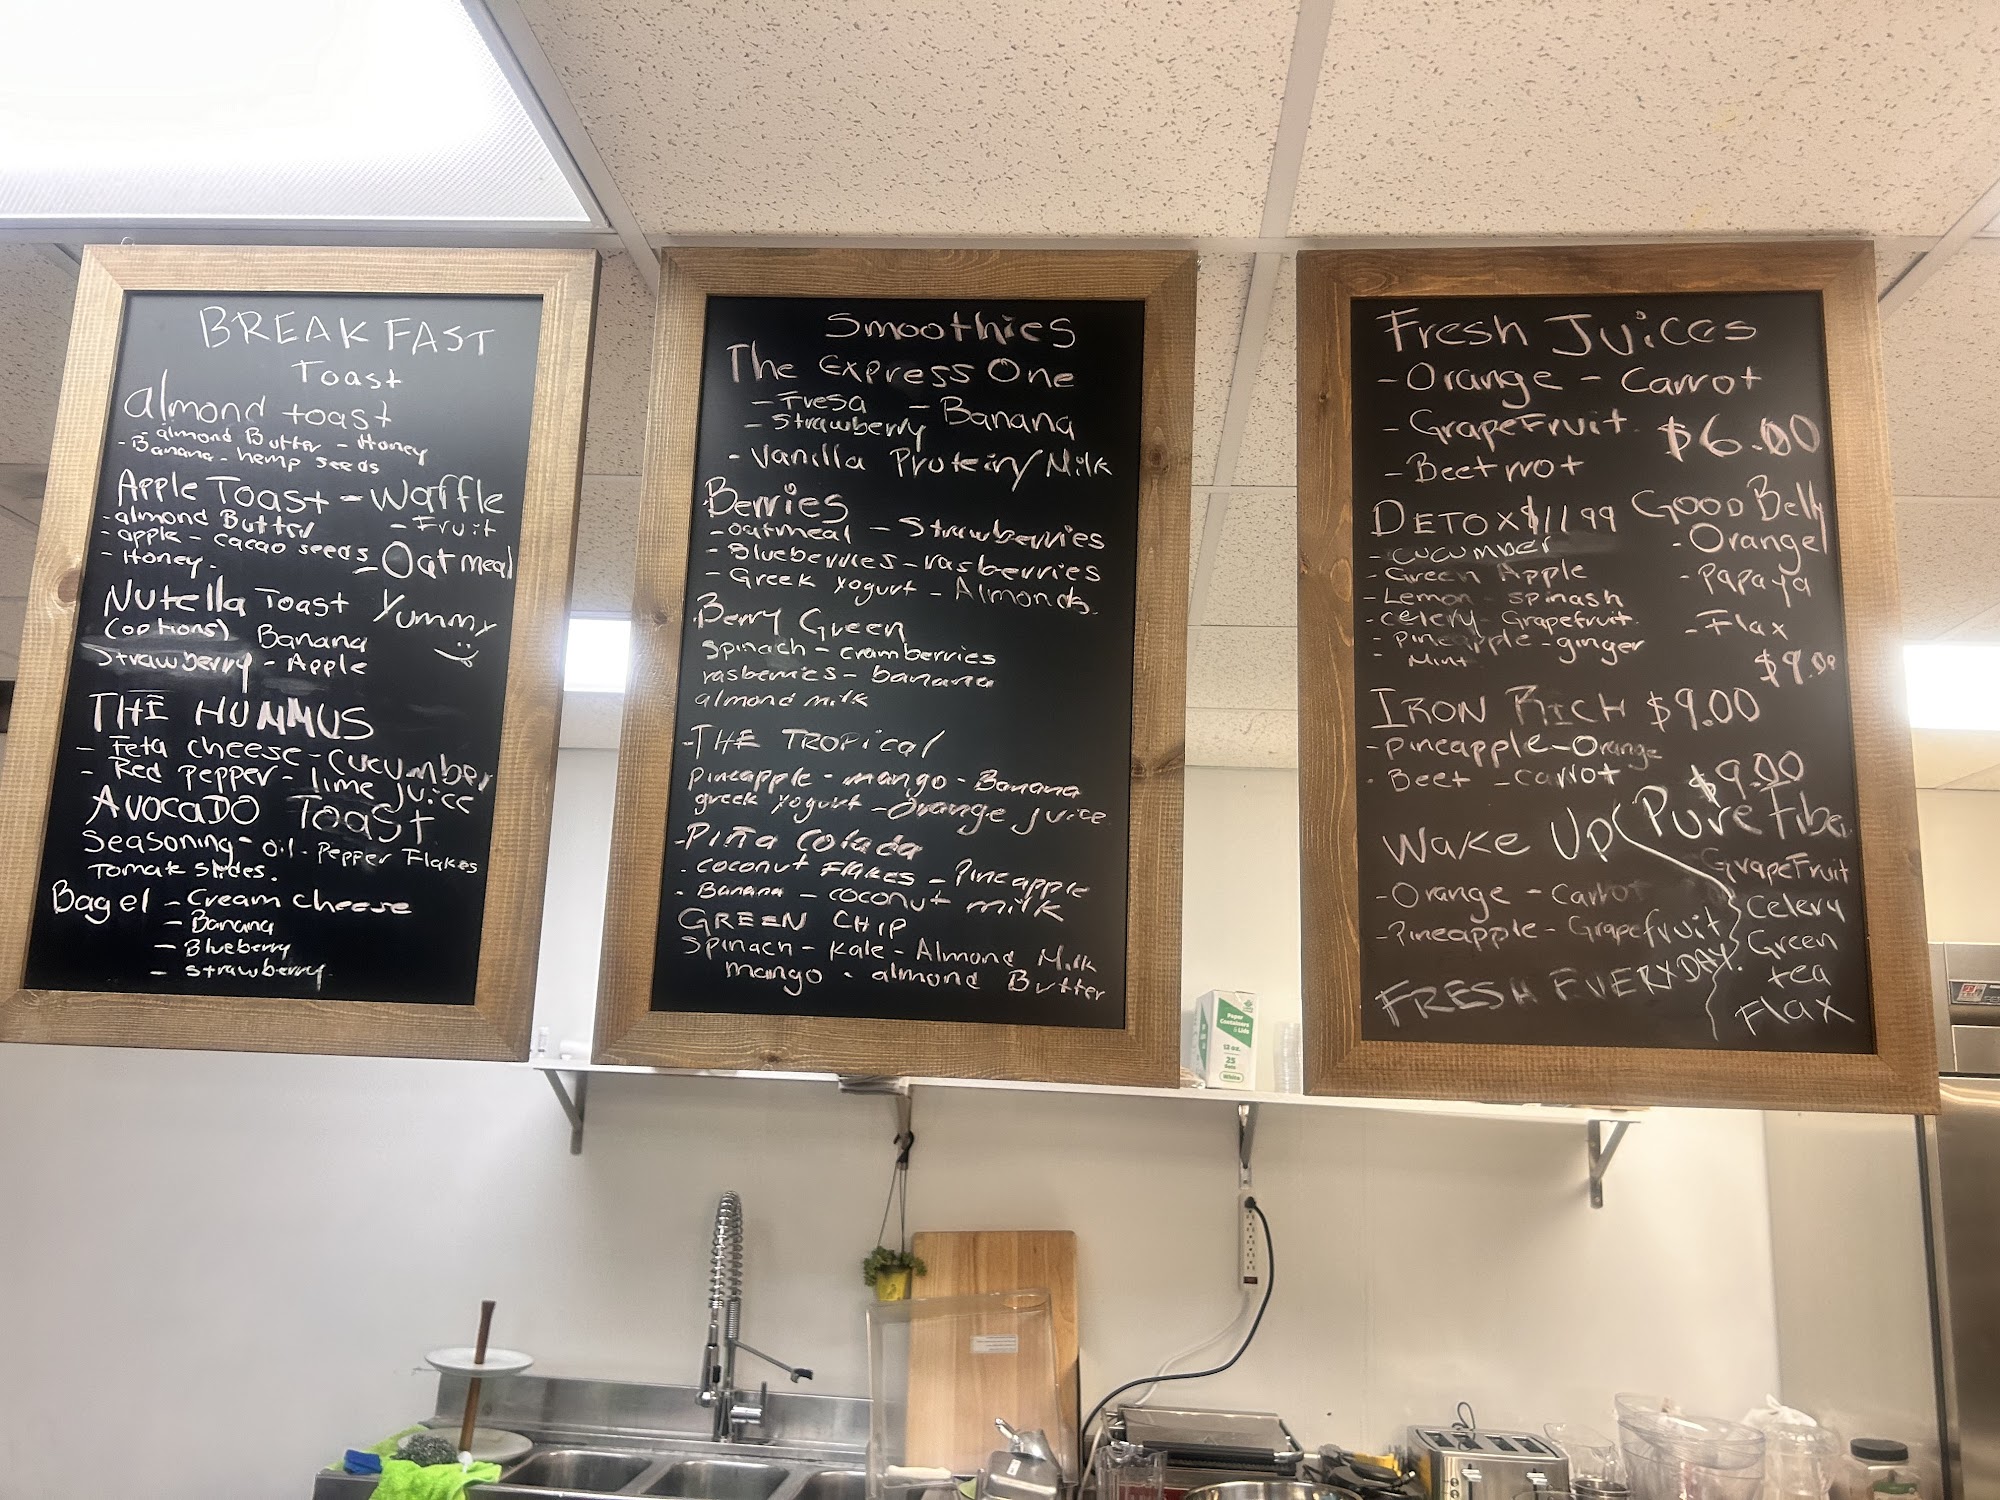 BREAKFAST
Toast
almond toast
- almond Butter - Honey
- Banana - hemp seeds
Apple Toast - Waffle
- almond Butter - Fruit
- apple - cacao seeds
- Oatmeal
- Honey.
Nutella Toast Yummy
(options) Banana
Strawberry - Apple
THE HUMMUS
- Feta cheese - cucumber
- Red pepper - lime juice
AVOCADO Toast
Seasoning - oil - Pepper Flakes
Bagel - Cream cheese
- Banana
- Blueberry
- strawberry
Smoothies
The Express One
- Fresa - Banana
- Strawberry
- Vanilla Protein/Milk
Berries
- oatmeal - Strawberries
- Blueberries - rasberries
- Greek yogurt - Almonds.
Berry Green
Spinach - cramberries
rasberries - banana
almond milk
- THE TROPical
pineapple - mango - Banana
greek yogurt - Orange juice
- Piña Colada
- coconut Flakes - Pineapple
- Banana - coconut milk
GREEN CHIP
Spinach - Kale - Almond Milk
mango - almond Butter
Fresh Juices
- Orange - Carrot
- GrapeFruit. $6.00
- Beetrrot
DETOX $11.99
- cucumber
- Green Apple
- Lemon - spinash
- celery - Grapefruit.
- Pineapple - ginger
Mint
GOOD Belly
- Orange
- Papaya
- Flax
$9.00
IRON RICH $9.00
- Pineapple - Orange
- Beet - carrot
Wake Up
- Orange - Carrot
- Pineapple - Grapefruit
$9.00
Pure Fiber
GrapeFruit
celery
Green
tea
Flax
FRESH EVERYDAY.
Paper
Containers
& Lids
12 oz.
25
Sets
White